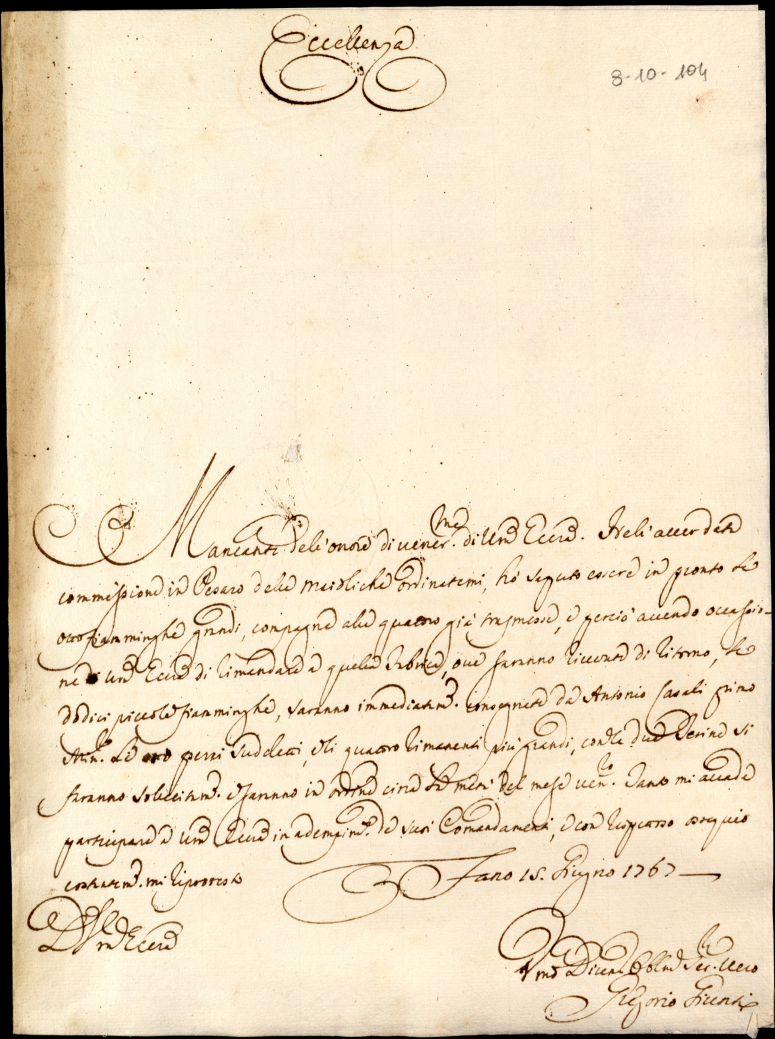 Eccellenza
8-10-104
Mancante dell'onore di vener.me di Vra Eccza. Nell'accerdata
commissione in Pesaro delle Maioliche ordinatemi, hò saputo essere in pronto le
otto fiamminghe grandi, compagne alle quattro già trasmesse, e perciò avendo occasio-
ne di Vra Eccza di rimandare a quella Fabrica, ove saranno ricevute di ritorno, le
dodici piccole fiamminghe, saranno immediatam.e consegnate da Antonio Casali primo
otto pezzi sudetti, e li quattro rimanenti più grandi, con le due Terine si
faranno sollecitam.e e saranno in ordine circa la metà del mese ven.ro Tanto mi accade
participare a Vra Eccza in adempim.to de suoi Comandamenti, e con rispettoso ossequio
costantem.e mi riprotesto
Fano 15. Giugno 1767
D V.ra Eccza
Vmo Divmo Oblmo Ser.re Vero
Gregorio